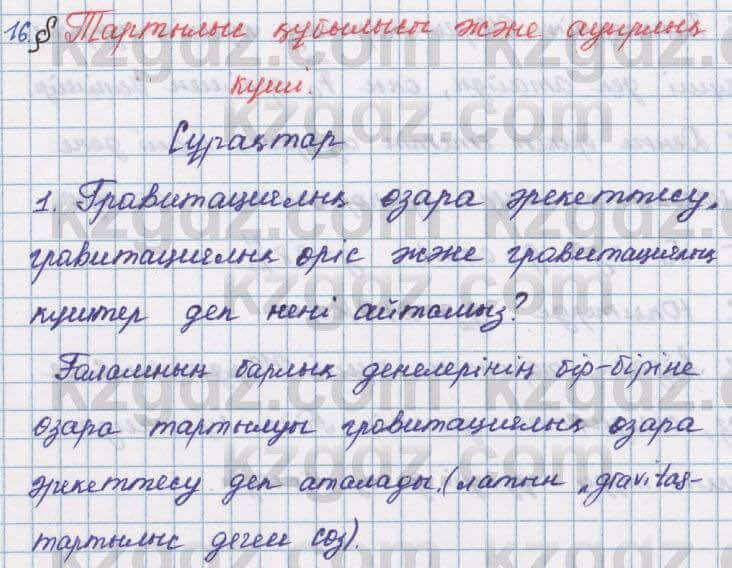 16.§ Тартылыс құбылысы және ауырлық
күші.
Сұрақтар
1. Гравитациялық өзара әрекеттесу,
гравитациялық өріс және гравитациялық
күштер деп нені айтамыз?
Ғаламның барлық денелерінің бір-біріне
өзара тартылуы гравитациялық өзара
әрекеттесу деп аталады.(латын „gravitas-
тартылыс деген сөз).
kzgdz.com